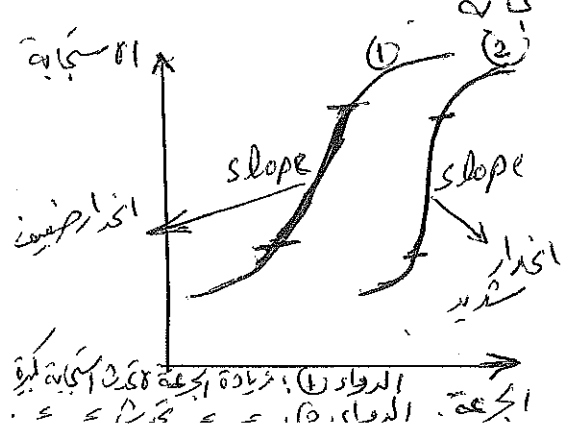 الاستجابة
① ②
slope slope
انحدار ضعيف
انحدار
شديد
الجرعة
الدواء ①: زيادة الجرعة لا تحدث استجابة كبيرة
الدواء ②: = = تحدث = =.